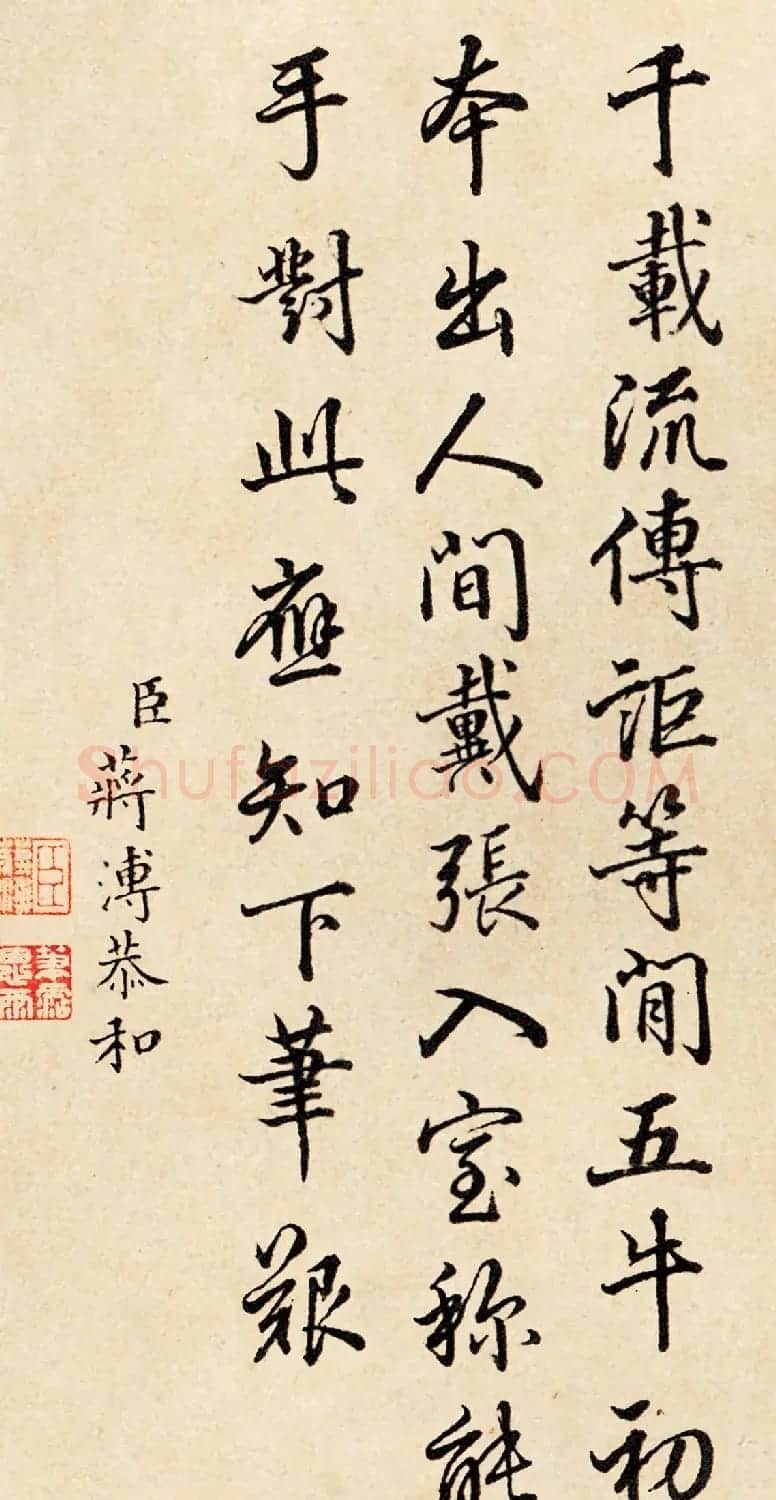 千載流傳詎等閒五牛初
本出人間戴張入室稱能
手對此應知下筆艱
臣蔣溥恭和
Shufaziliao.COM